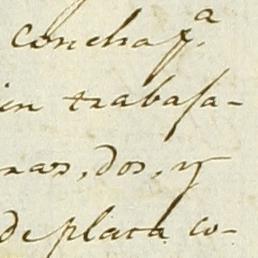 concha p.ª
in trabaja-
nas, dos, y
de plata co-